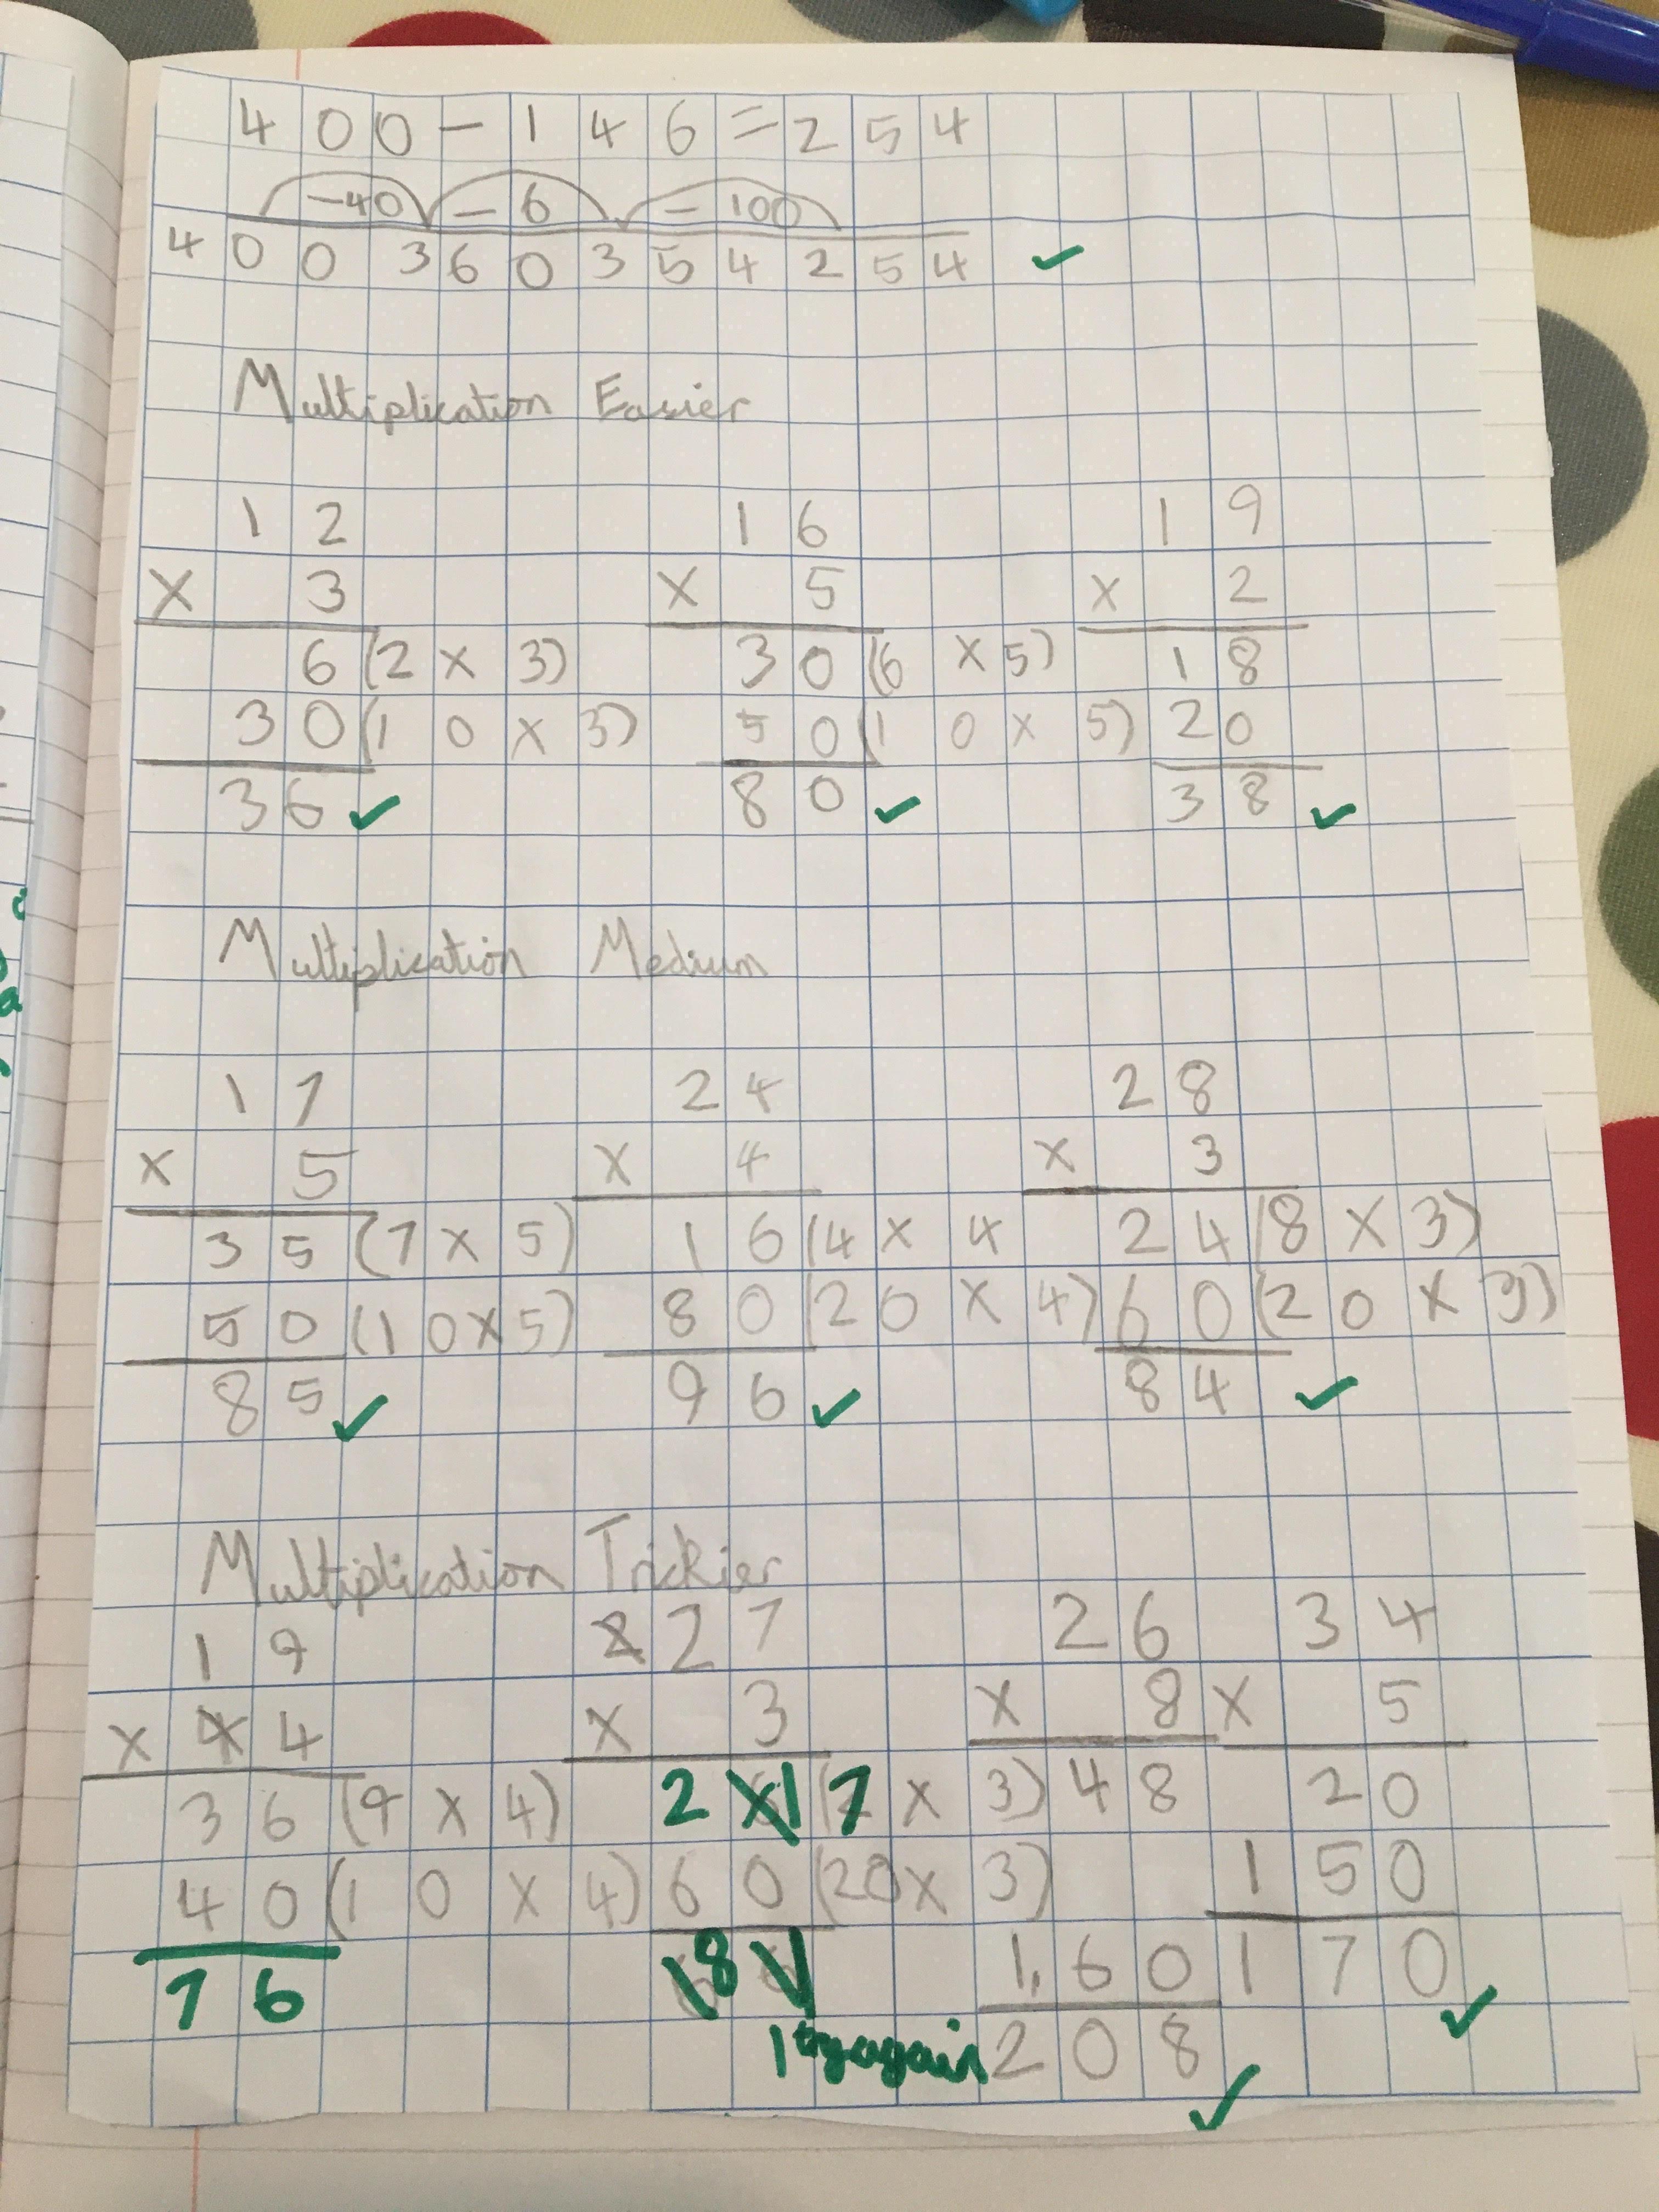 400-146=254
-40 -6 -100
400 360 354 254
Multiplication Easier
12 16 19
x 3 x 5 x 2
6(2 x 3) 30(6 x5) 18
30(10 x 3) 50(10 x 5) 20
36 80 38
Multiplication Medium
17 24 28
x 5 x 4 x 3
35(7 x 5) 16(4 x 4 24(8 x 3)
50(10x5) 80(20 x 4) 60(20 x 3)
85 96 84
Multiplication Trickier
19 227 26 34
x 44 x 3 x 8 x 5
36(9 x 4) 21(7 x 3) 48 20
40(10 x 4) 60(20x 3) 150
76 81 1.60 170
try again 208